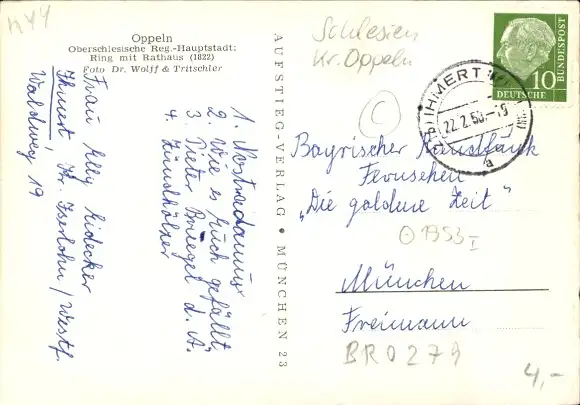 n44
Oppeln
Oberschlesische Reg.-Hauptstadt:
Ring mit Rathaus (1822)
Foto Dr. Wolff & Tritschler
Frau Elly Eidecker
Ihmert, Kr. Iserlohn/Westf.
Waldweg 19
1. Nostradamus
2. Wie es Euch gefällt
3. Pieter Bruegel d. A.
4. Zündhölzer
AUFSTIEG-VERLAG • MÜNCHEN 23
Schlesien
Kr. Oppeln
10
DEUTSCHE
BUNDESPOST
IHMERT
22.2.
a
C
Bayrischer Rundfunk
Fernsehen
„Die goldene Zeit"
1953
München
Freimann
BRO279
4,-